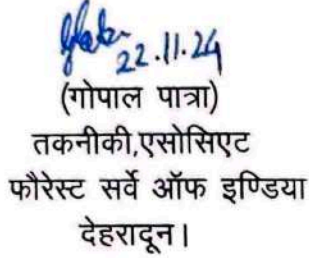 22.11.24
(गोपाल पात्रा)
तकनीकी,एसोसिएट
फौरेस्ट सर्वे ऑफ इण्डिया
देहरादून।